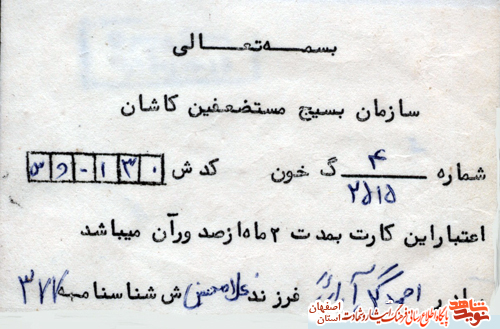 بسمه تعالی
سازمان بسیج مستضعفین کاشان
شماره ۴/۲۵۱۵ گ خون کدش
اعتبار این کارت بمدت ۲ ماه از صدور آن میباشد
برادر احمد فرزند غلامحسین ش شناسنامه ۳۷۱
نوید شاهد
اصفهان
پایگاه اطلاع رسانی فرهنگ ایثار و شهادت
استان